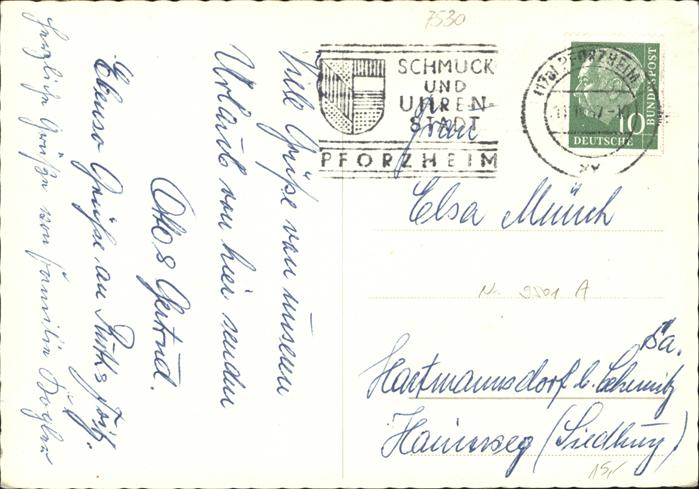 7530
SCHMUCK
UND
UHREN-
STADT
PFORZHEIM
PFORZHEIM
10
DEUTSCHE
BUNDESPOST
Viele Grüße von unserem
Urlaub von hier senden
Otto & Gertrud.
Ebenso Grüße an Ruth & Fritz.
Herzliche Grüße von Familie
Frau
Elsa Münch
Nr. 9801 A
Hartmannsdorf b. Chemnitz
Sa.
Hainweg (Siedlung)